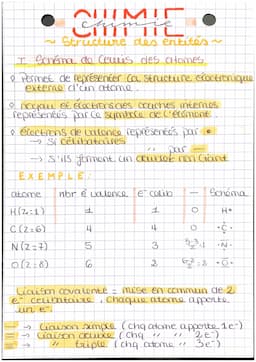 CHIMIE
chimie
~ Structure des entités ~
I. Schéma de Lewis des atomes
Permet de représenter la structure électronique
externe d'un atome.
noyau et électrons des couches internes
représentés par le symbole de l'élément.
électrons de valence représentés par •
→ si célibataires
" par —
→ s'ils forment un doublet non liant
EXEMPLE:
atome nbr é valence é célib — Schéma
H (Z=1) 1 1 0 H•
C (Z=6) 4 4 0 •C•
N (Z=7) 5 3 5-3/2=1 •N•
O (Z=8) 6 2 6-2/2=2 •O•
Liaison covalente = mise en commun de 2
e⁻ célibataires, chaque atome apporte
un e⁻.
→ liaison simple (chq atome apporte 1e⁻)
→ liaison double (chq " " 2e⁻)
→ " triple (chq atome " 3e⁻)